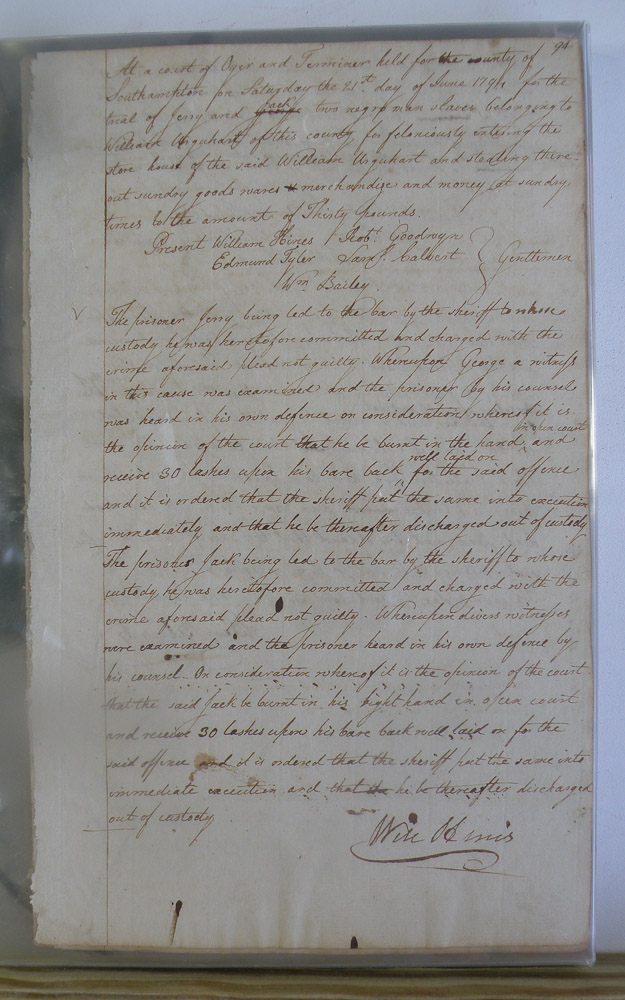 94
At a court of Oyer and Terminer held for the county of
Southampton on Saturday the 21st day of June 1794 for the
trial of Jerry and Jack two negro man slaves belonging to
William Urquhart of this county for feloniously entering the
store house of the said William Urquhart and stealing there
out sundry goods wares & merchandizes and money at sundry
times to the amount of Thirty pounds.
Present William Hines Robt. Goodwyn
Edmund Tyler Saml. Calvert Gentlemen
Wm. Bailey
The prisoner Jerry being led to the bar by the sheriff to whose
custody he was heretofore committed and charged with the
crime aforesaid plead not guilty. Whereupon George a witness
in this cause was examined and the prisoner by his counsel
was heard in his own defence on consideration whereof it is
the opinion of the court that he be burnt in the hand in open court and
receive 30 lashes upon his bare back well laid on for the said offence
and it is ordered that the sheriff put the same into execution
immediately and that he be thereafter discharged out of custody
The prisoner Jack being led to the bar by the sheriff to whose
custody he was heretofore committed and charged with the
crime aforesaid plead not guilty. Whereupon divers witnesses
were examined and the prisoner heard in his own defence by
his counsel. On consideration whereof it is the opinion of the court
that the said Jack be burnt in his right hand in open court
and receive 30 lashes upon his bare back well laid on for the
said offence and it is ordered that the sheriff put the same into
immediate execution and that he be thereafter discharged
out of custody
Will Hines